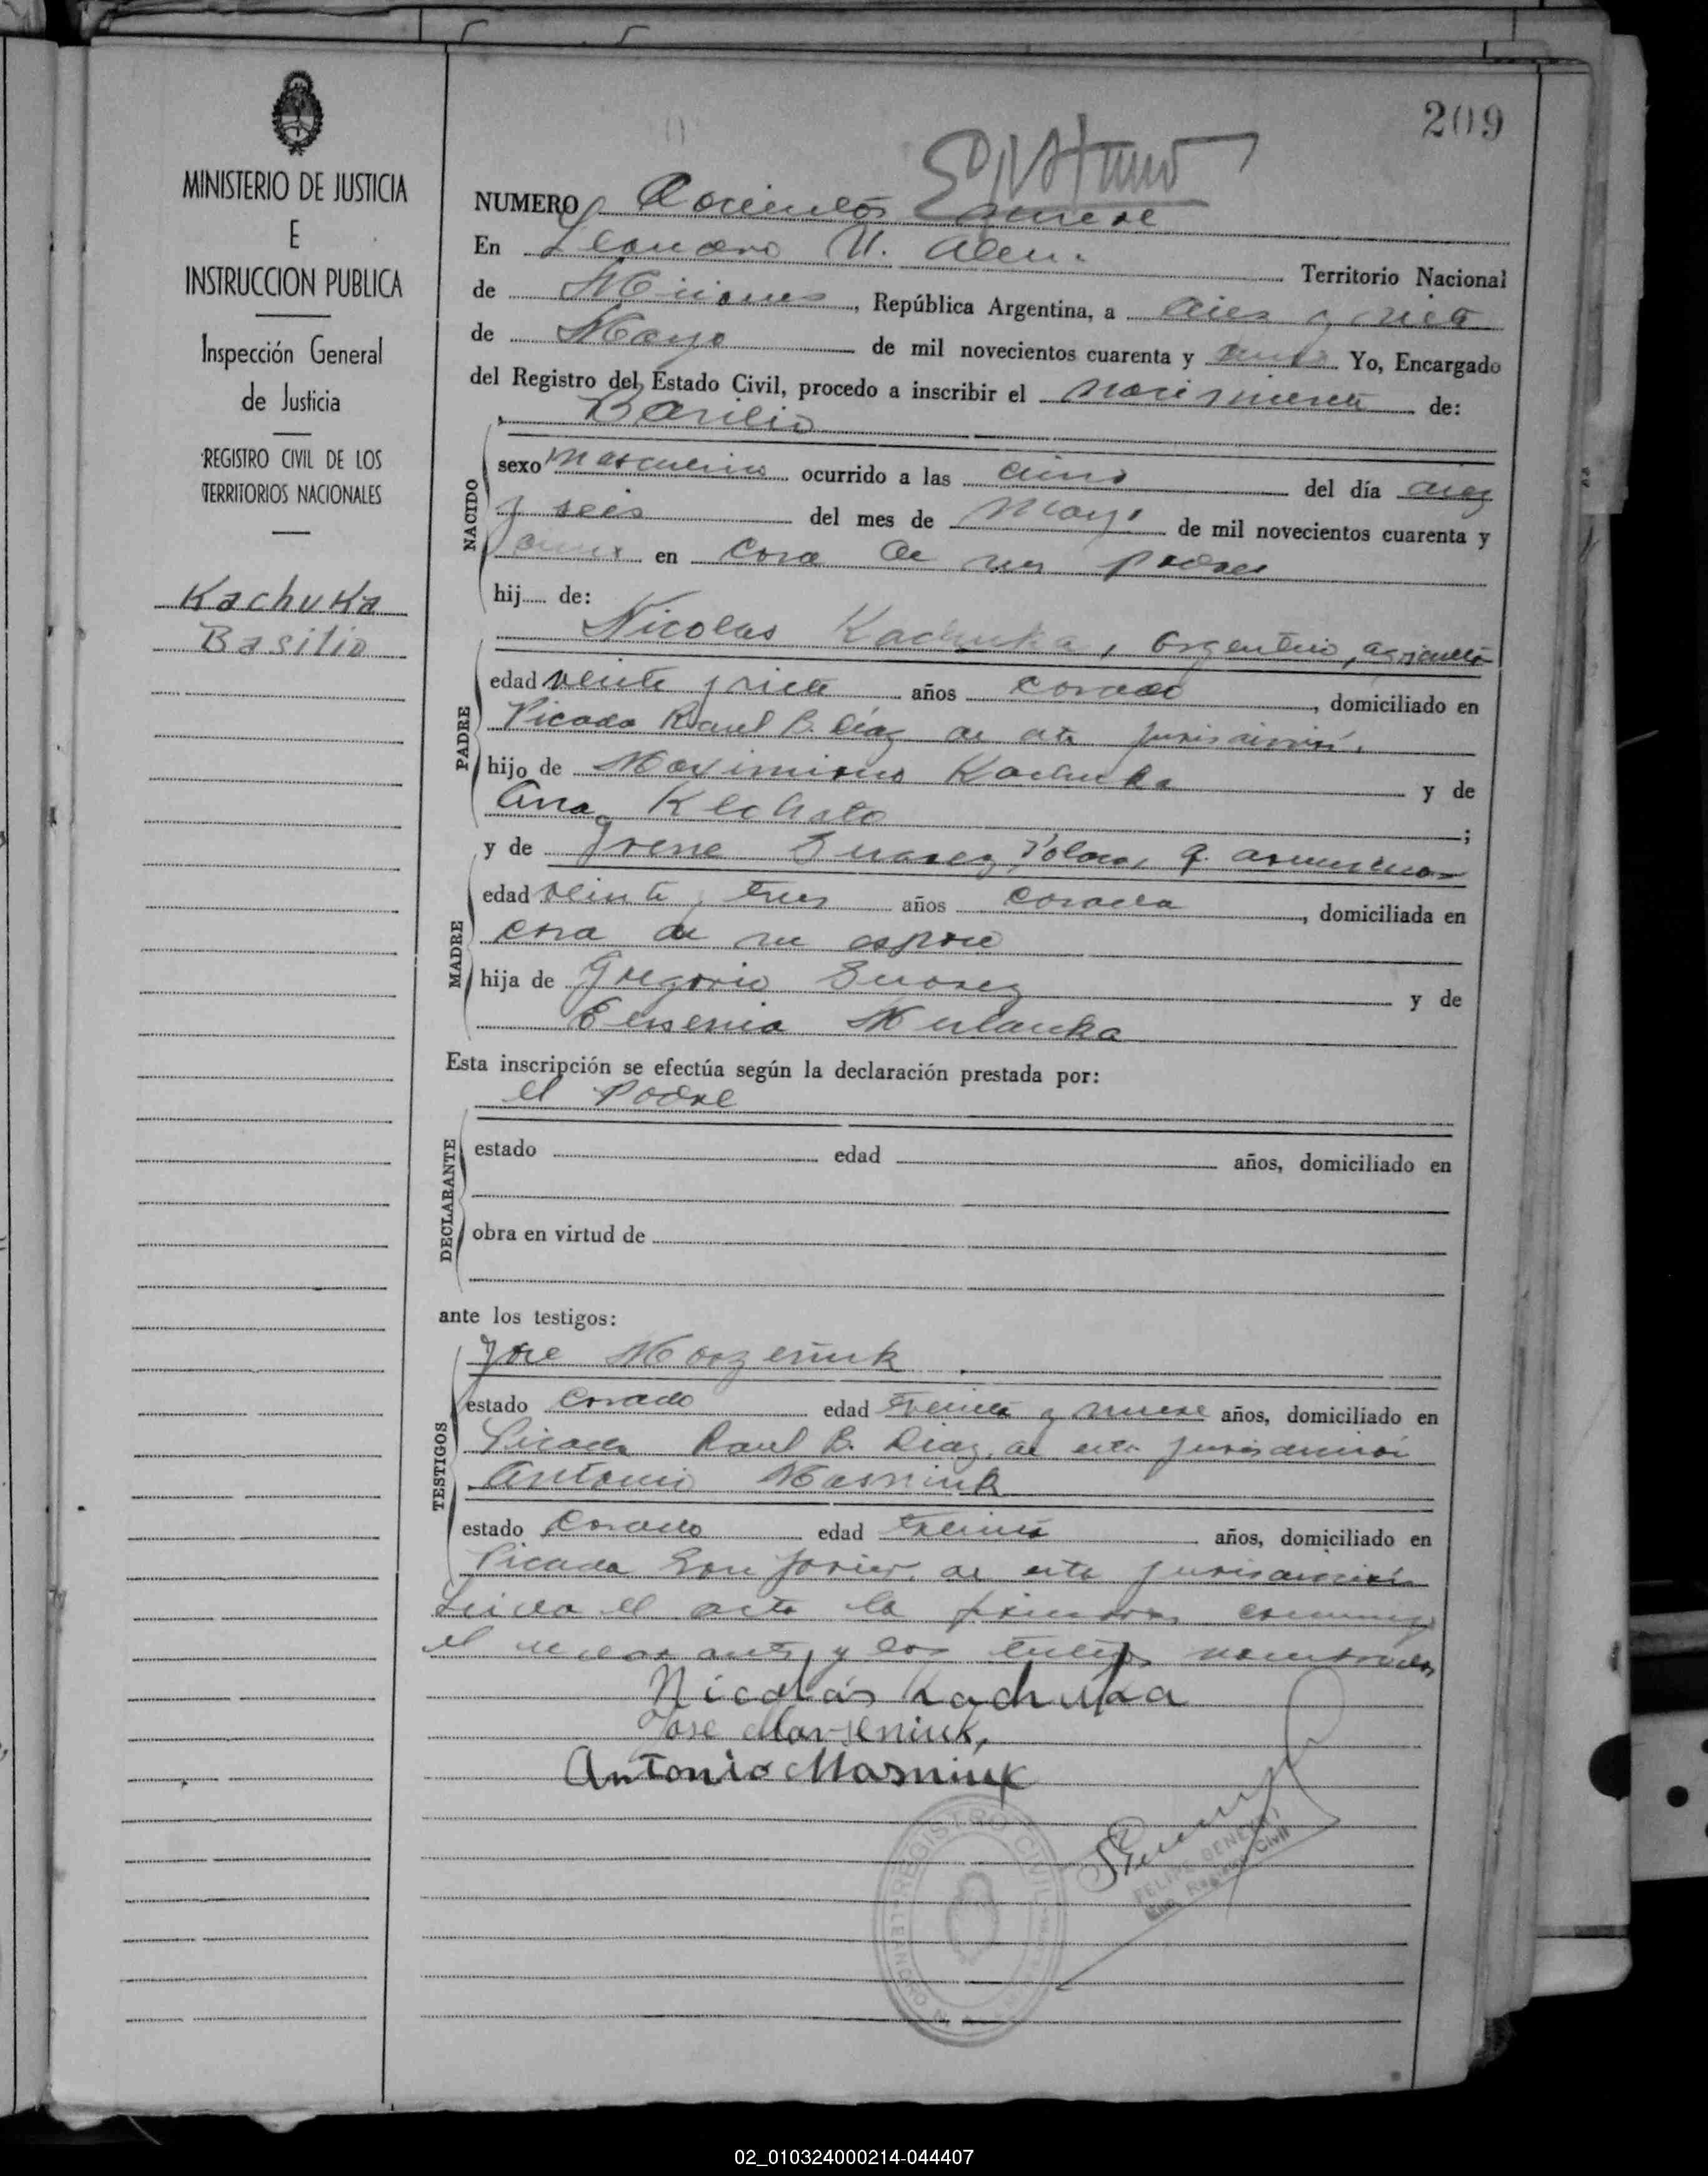 209
MINISTERIO DE JUSTICIA
E
INSTRUCCION PUBLICA
Inspección General
de Justicia
REGISTRO CIVIL DE LOS
TERRITORIOS NACIONALES
Kachuka
Basilio
NUMERO Docientos nueve
En Leandro N. Alem. Territorio Nacional
de Misiones, República Argentina, a diez y siete
de Mayo de mil novecientos cuarenta y uno Yo, Encargado
del Registro del Estado Civil, procedo a inscribir el nacimiento de:
Basilio
NACIDO
sexo masculino ocurrido a las cinco del día diez
y seis del mes de Mayo de mil novecientos cuarenta y
uno en casa de sus padres
hij de:
Nicolas Kachuka, argentino, agricultor
PADRE
edad veinte y siete años casado, domiciliado en
Picada Raul B. Diaz de esta jurisdicción.
hijo de Maximiano Kachuka y de
Ana;
y de Irene Suarez, Polaca, q. domesticos
MADRE
edad veinte y tres años casada, domiciliada en
casa de su esposo
hija de Gregorio Suarez y de
Eugenia Mulauka
Esta inscripción se efectúa según la declaración prestada por:
el Padre
DECLARANTE
estado edad años, domiciliado en
obra en virtud de
ante los testigos:
TESTIGOS
Jose Marzeniuk
estado casado edad treinta y nueve años, domiciliado en
Picada Raul B. Diaz, de esta jurisdiccion
Antonio Masniuk
estado casado edad treinta años, domiciliado en
Picada San Javier, de esta jurisdicción
Leida el acta la firmaron conmigo
el declarante, y los testigos nombrados
Nicolás Kachuka
Jose Marseniuk,
Antonio Masniuk
REGISTRO CIVIL
LEANDRO N.
FELIPE BENE
Enc. Registro Civil
02_010324000214-044407